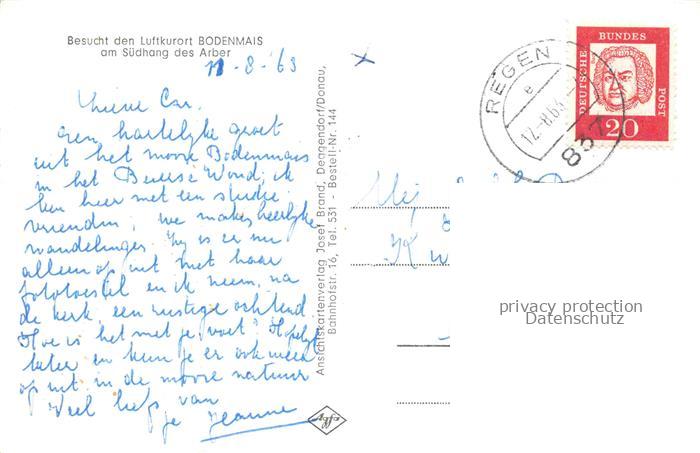 Besucht den Luftkurort BODENMAIS
am Südhang des Arber
11-8-63
Lieve Cor.
een hartelijke groet
uit het mooie Bodenmais
in het Beierse Woud; ik
ben hier met een studie
vriendin; we maken heerlijke
wandelingen. Zij is er nu
alleen op uit met haar
fototoestel en ik neem, na
de kerk, een rustige ochtend.
Hoe is het met je voet? Hopelijk
beter en kun je er ook weer
op uit in de mooie natuur
Veel liefs van
je Jeanne
Ansichtskartenverlag Josef Brand, Deggendorf/Donau,
Bahnhofstr. 16, Tel. 531 - Bestell-Nr. 144
Mej.
DEUTSCHE
BUNDES
POST
20
REGEN
e
12.-8.63
837
privacy protection
Datenschutz